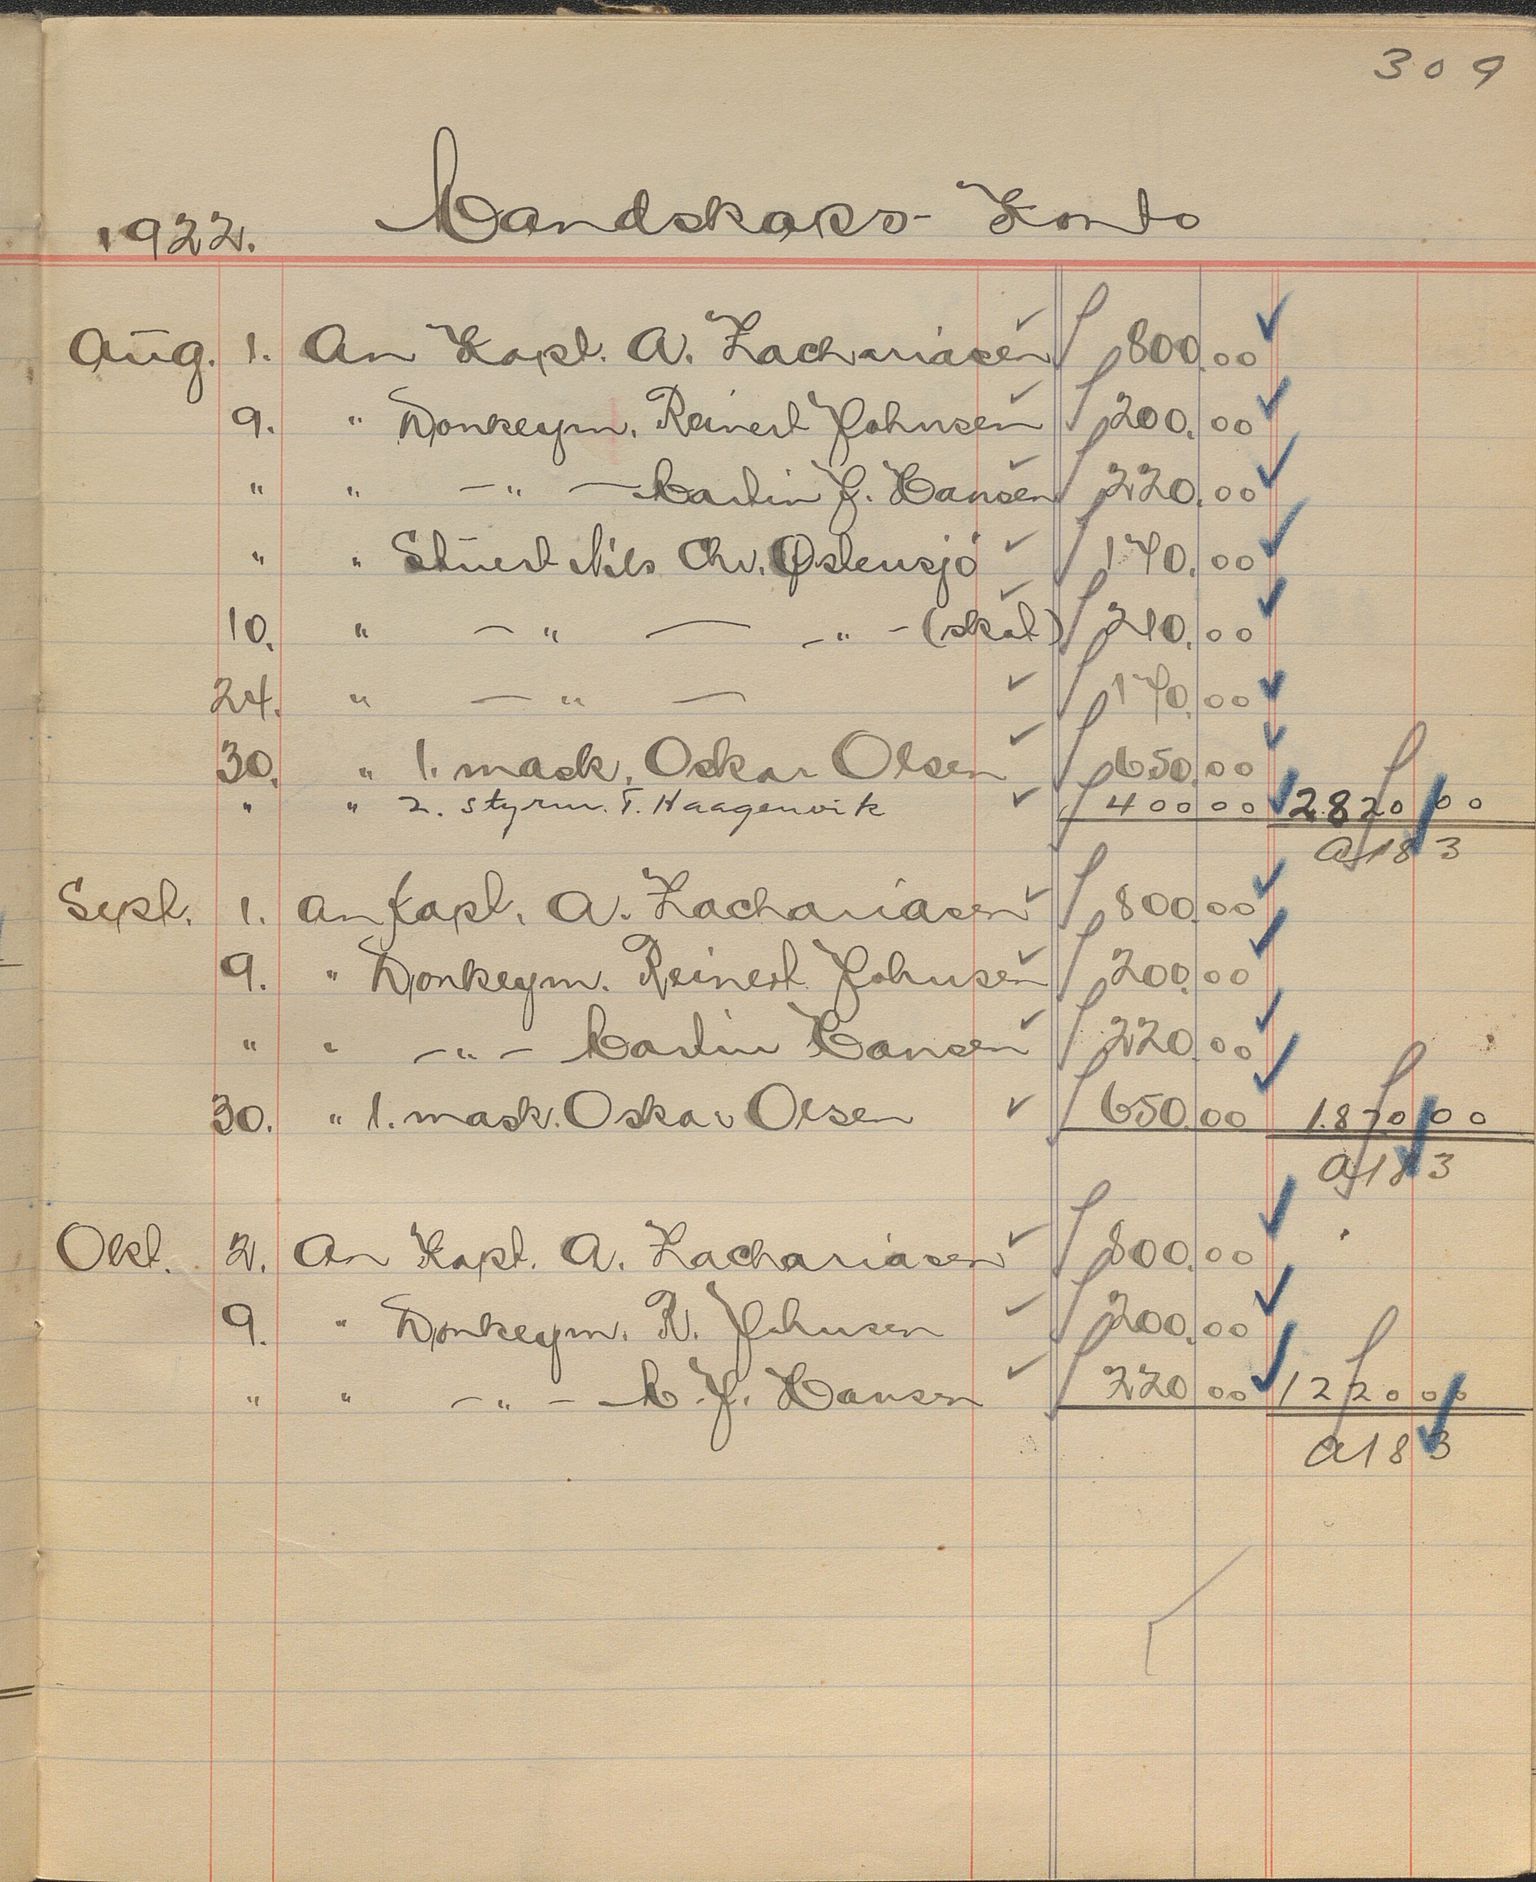 309
1922. Mandskaps- Konto
Aug. 1. An Kapt. A. Zachariasen 800.00
9. " Donkeym. Reinert Johnsen 200.00
" " — " — Martin J. Hansen 220.00
" " Stuert Nils Chr. Østensjö 170.00
10. " — " — — " — (skat) 210.00
24. " — " — 170.00
30. " 1. mask. Oskar Olsen 650.00
" " 2. styrm. T. Haagenvik 400 00 2820 00
a 183
Sept. 1. An Kapt. A. Zachariasen 800.00
9. " Donkeym. Reinert Johnsen 200.00
" " — " — Martin Hansen 220.00
30. " 1. mask. Oskar Olsen 650.00 1.870 00
a 183
Okt. 2. An Kapt. A. Zachariasen 800.00
9. " Donkeym. R. Johnsen 200.00
" " — " — M. J. Hansen 220 00 1220 00
a 183